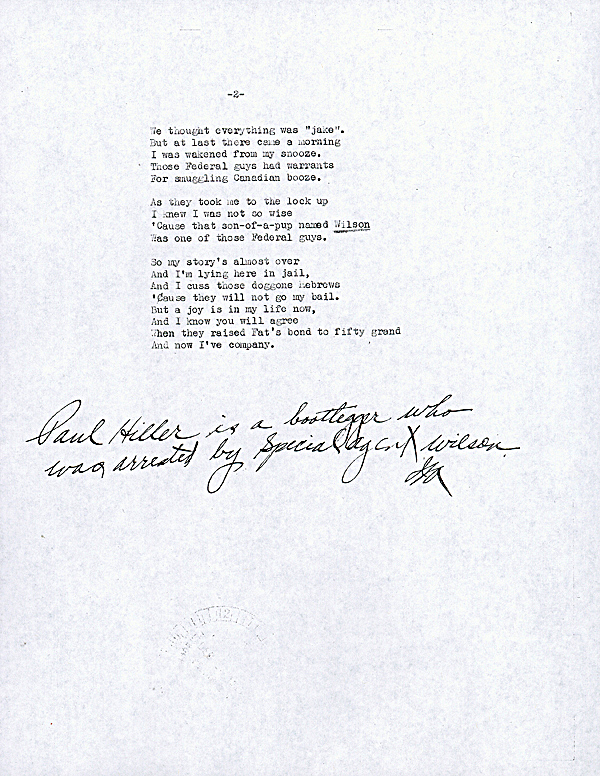 -2-
We thought everything was "jake".
But at last there came a morning
I was wakened from my snooze.
Those Federal guys had warrants
For smuggling Canadian booze.
As they took me to the lock up
I knew I was not so wise
'Cause that son-of-a-pup named Wilson
Was one of those Federal guys.
So my story's almost over
And I'm lying here in jail,
And I cuss those doggone hebrews
'Cause they will not go my bail.
But a joy is in my life now,
And I know you will agree
When they raised Fat's bond to fifty grand
And now I've company.
Paul Hiller is a bootlegger who
was arrested by Special agent Wilson